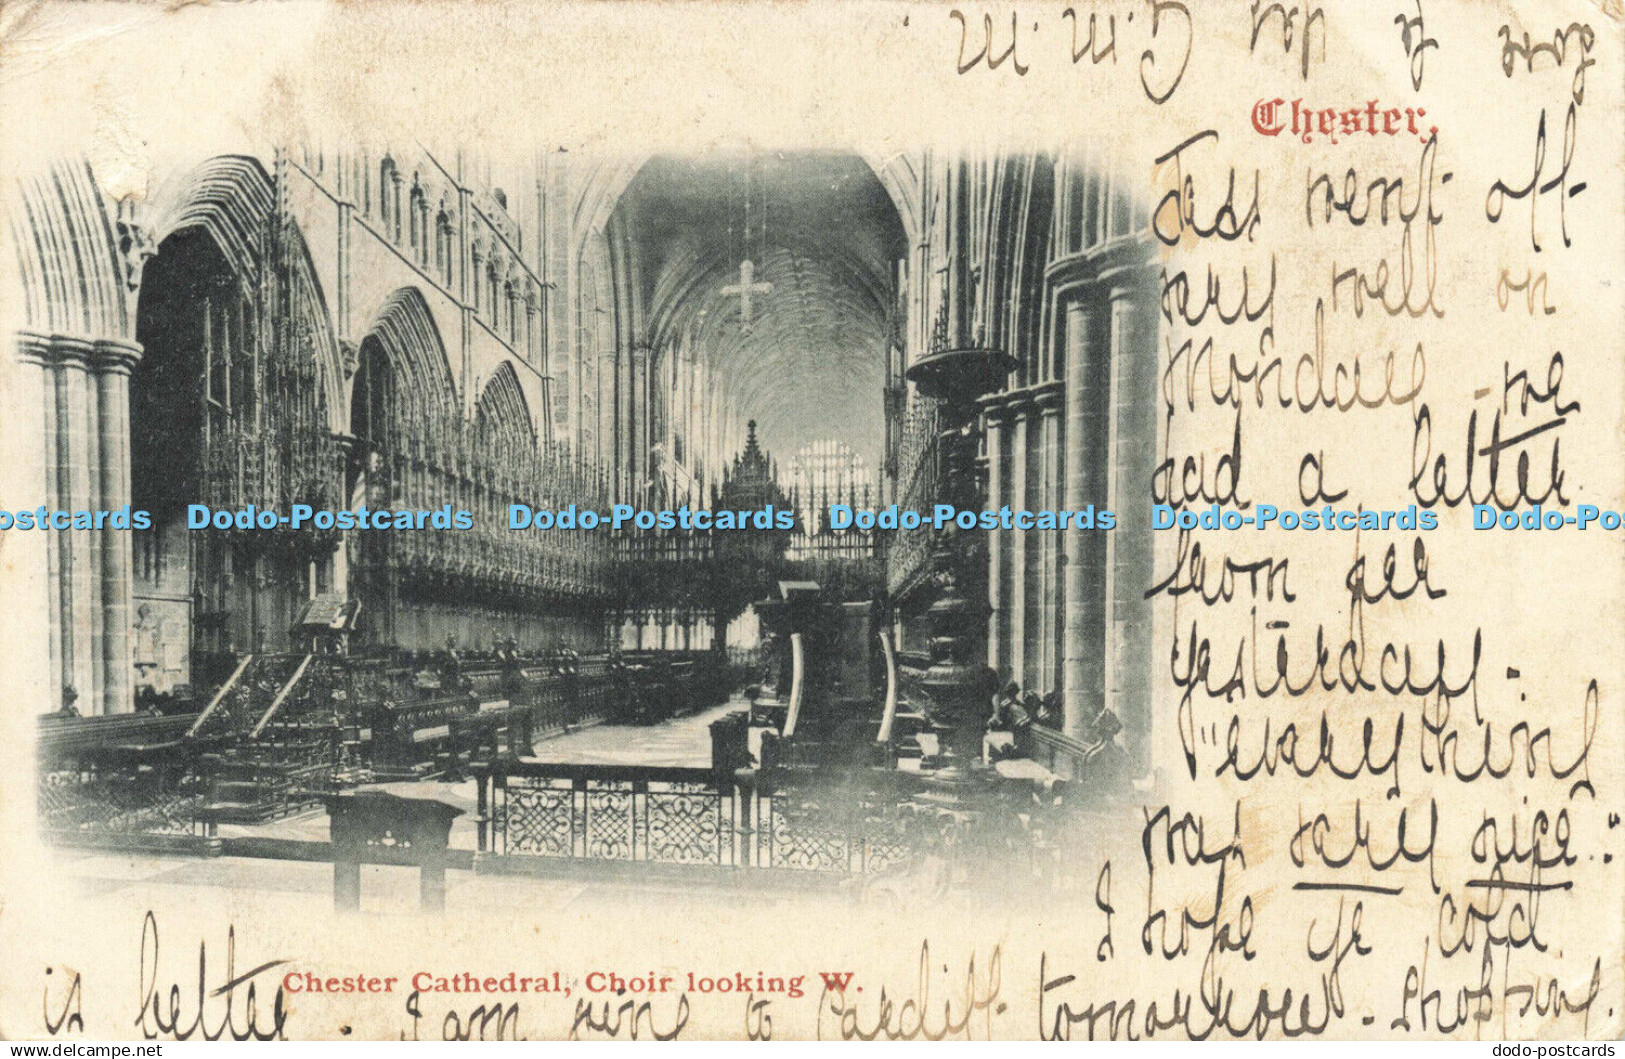 Chester.
Jess went off
very well on
Monday - we
had a letter
from her
yesterday.
"everything
was very nice":
I hope yr cold
is better. I am going to Cardiff tomorrow - shopping.
Love to
G.M.M.
Chester Cathedral, Choir looking W.
Dodo-Postcards Dodo-Postcards Dodo-Postcards Dodo-Postcards
dodo-postcards.com